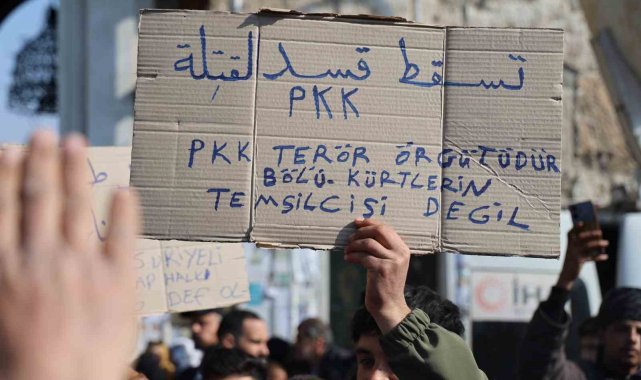 تسقط قسد لقتلة
PKK
PKK TERÖR ÖRGÜTÜDÜR
BÖLÜ. KÜRTLERİN
TEMSİLCİSİ DEĞİL
SURİYELİ
HALKI
DEF OL
İH